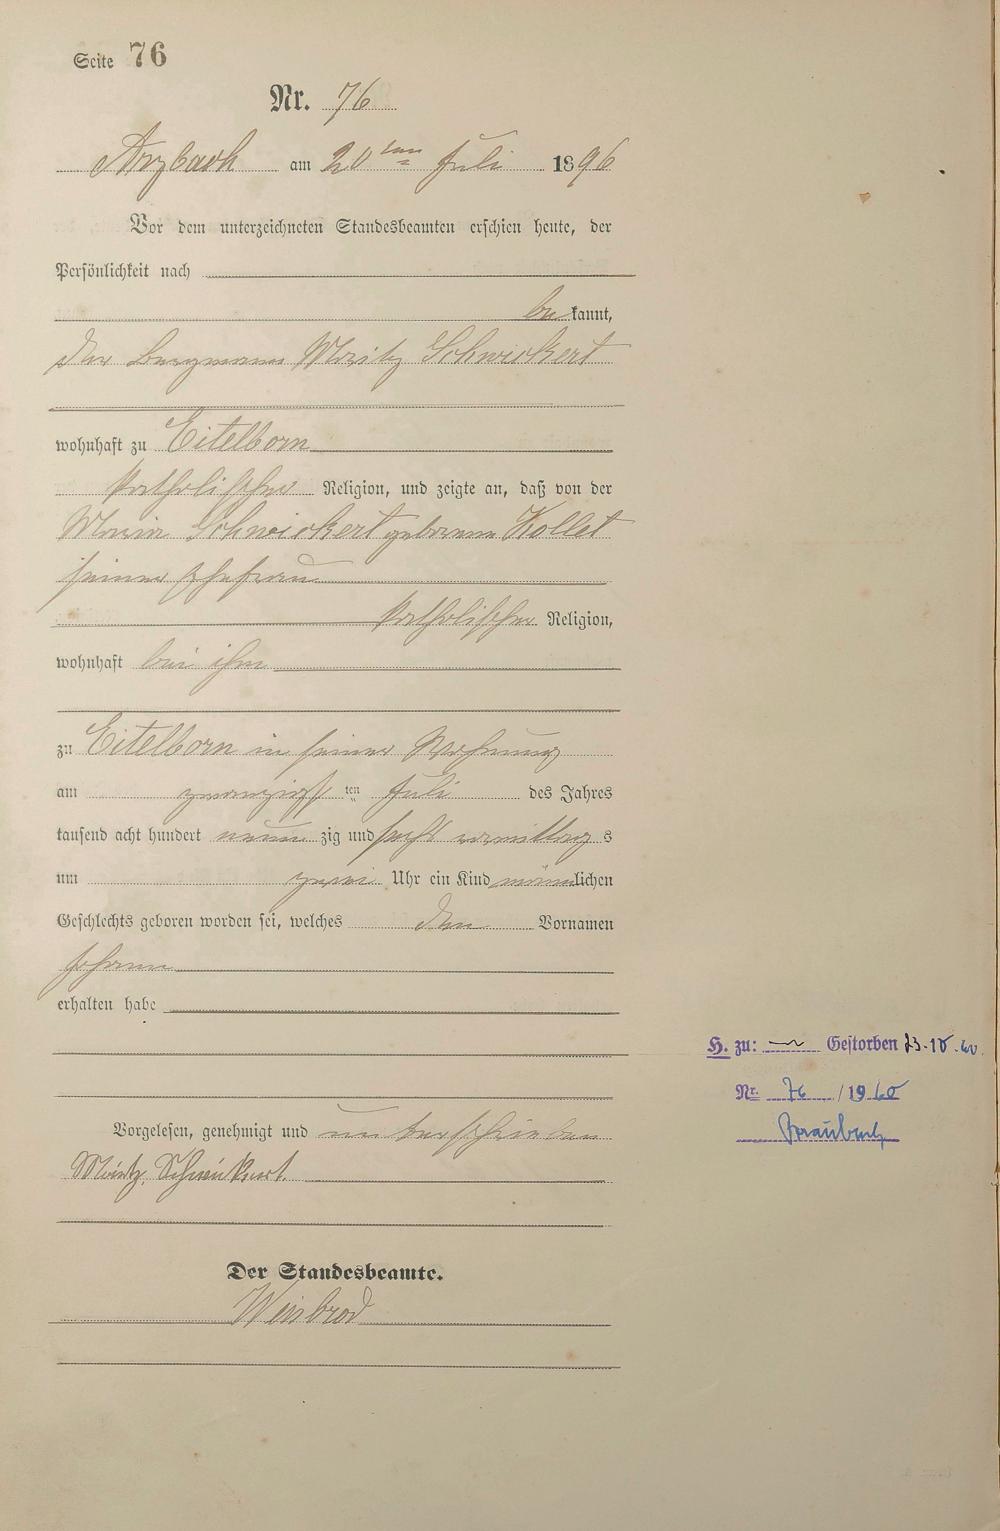 Seite 76
Nr. 76
Arzbach am 20ten Juli 1896
Vor dem unterzeichneten Standesbeamten erschien heute, der
Persönlichkeit nach
bekannt,
der Bergmann Moritz Schwickert
wohnhaft zu Eitelborn
katholischer Religion, und zeigte an, daß von der
Maria Schwickert geborene Kollet
seiner Ehefrau
katholischer Religion,
wohnhaft bei ihm
zu Eitelborn in seiner Wohnung
am zwanzigsten Juli des Jahres
tausend acht hundert neunzig und sechs vormittags
um zwei Uhr ein Kind männlichen
Geschlechts geboren worden sei, welches den Vornamen
Johann
erhalten habe
H. zu: Gestorben 23.10.60
Nr. 76/1960
Braubach
Vorgelesen, genehmigt und unterschrieben
Moritz Schwickert.
Der Standesbeamte.
Weisbrod